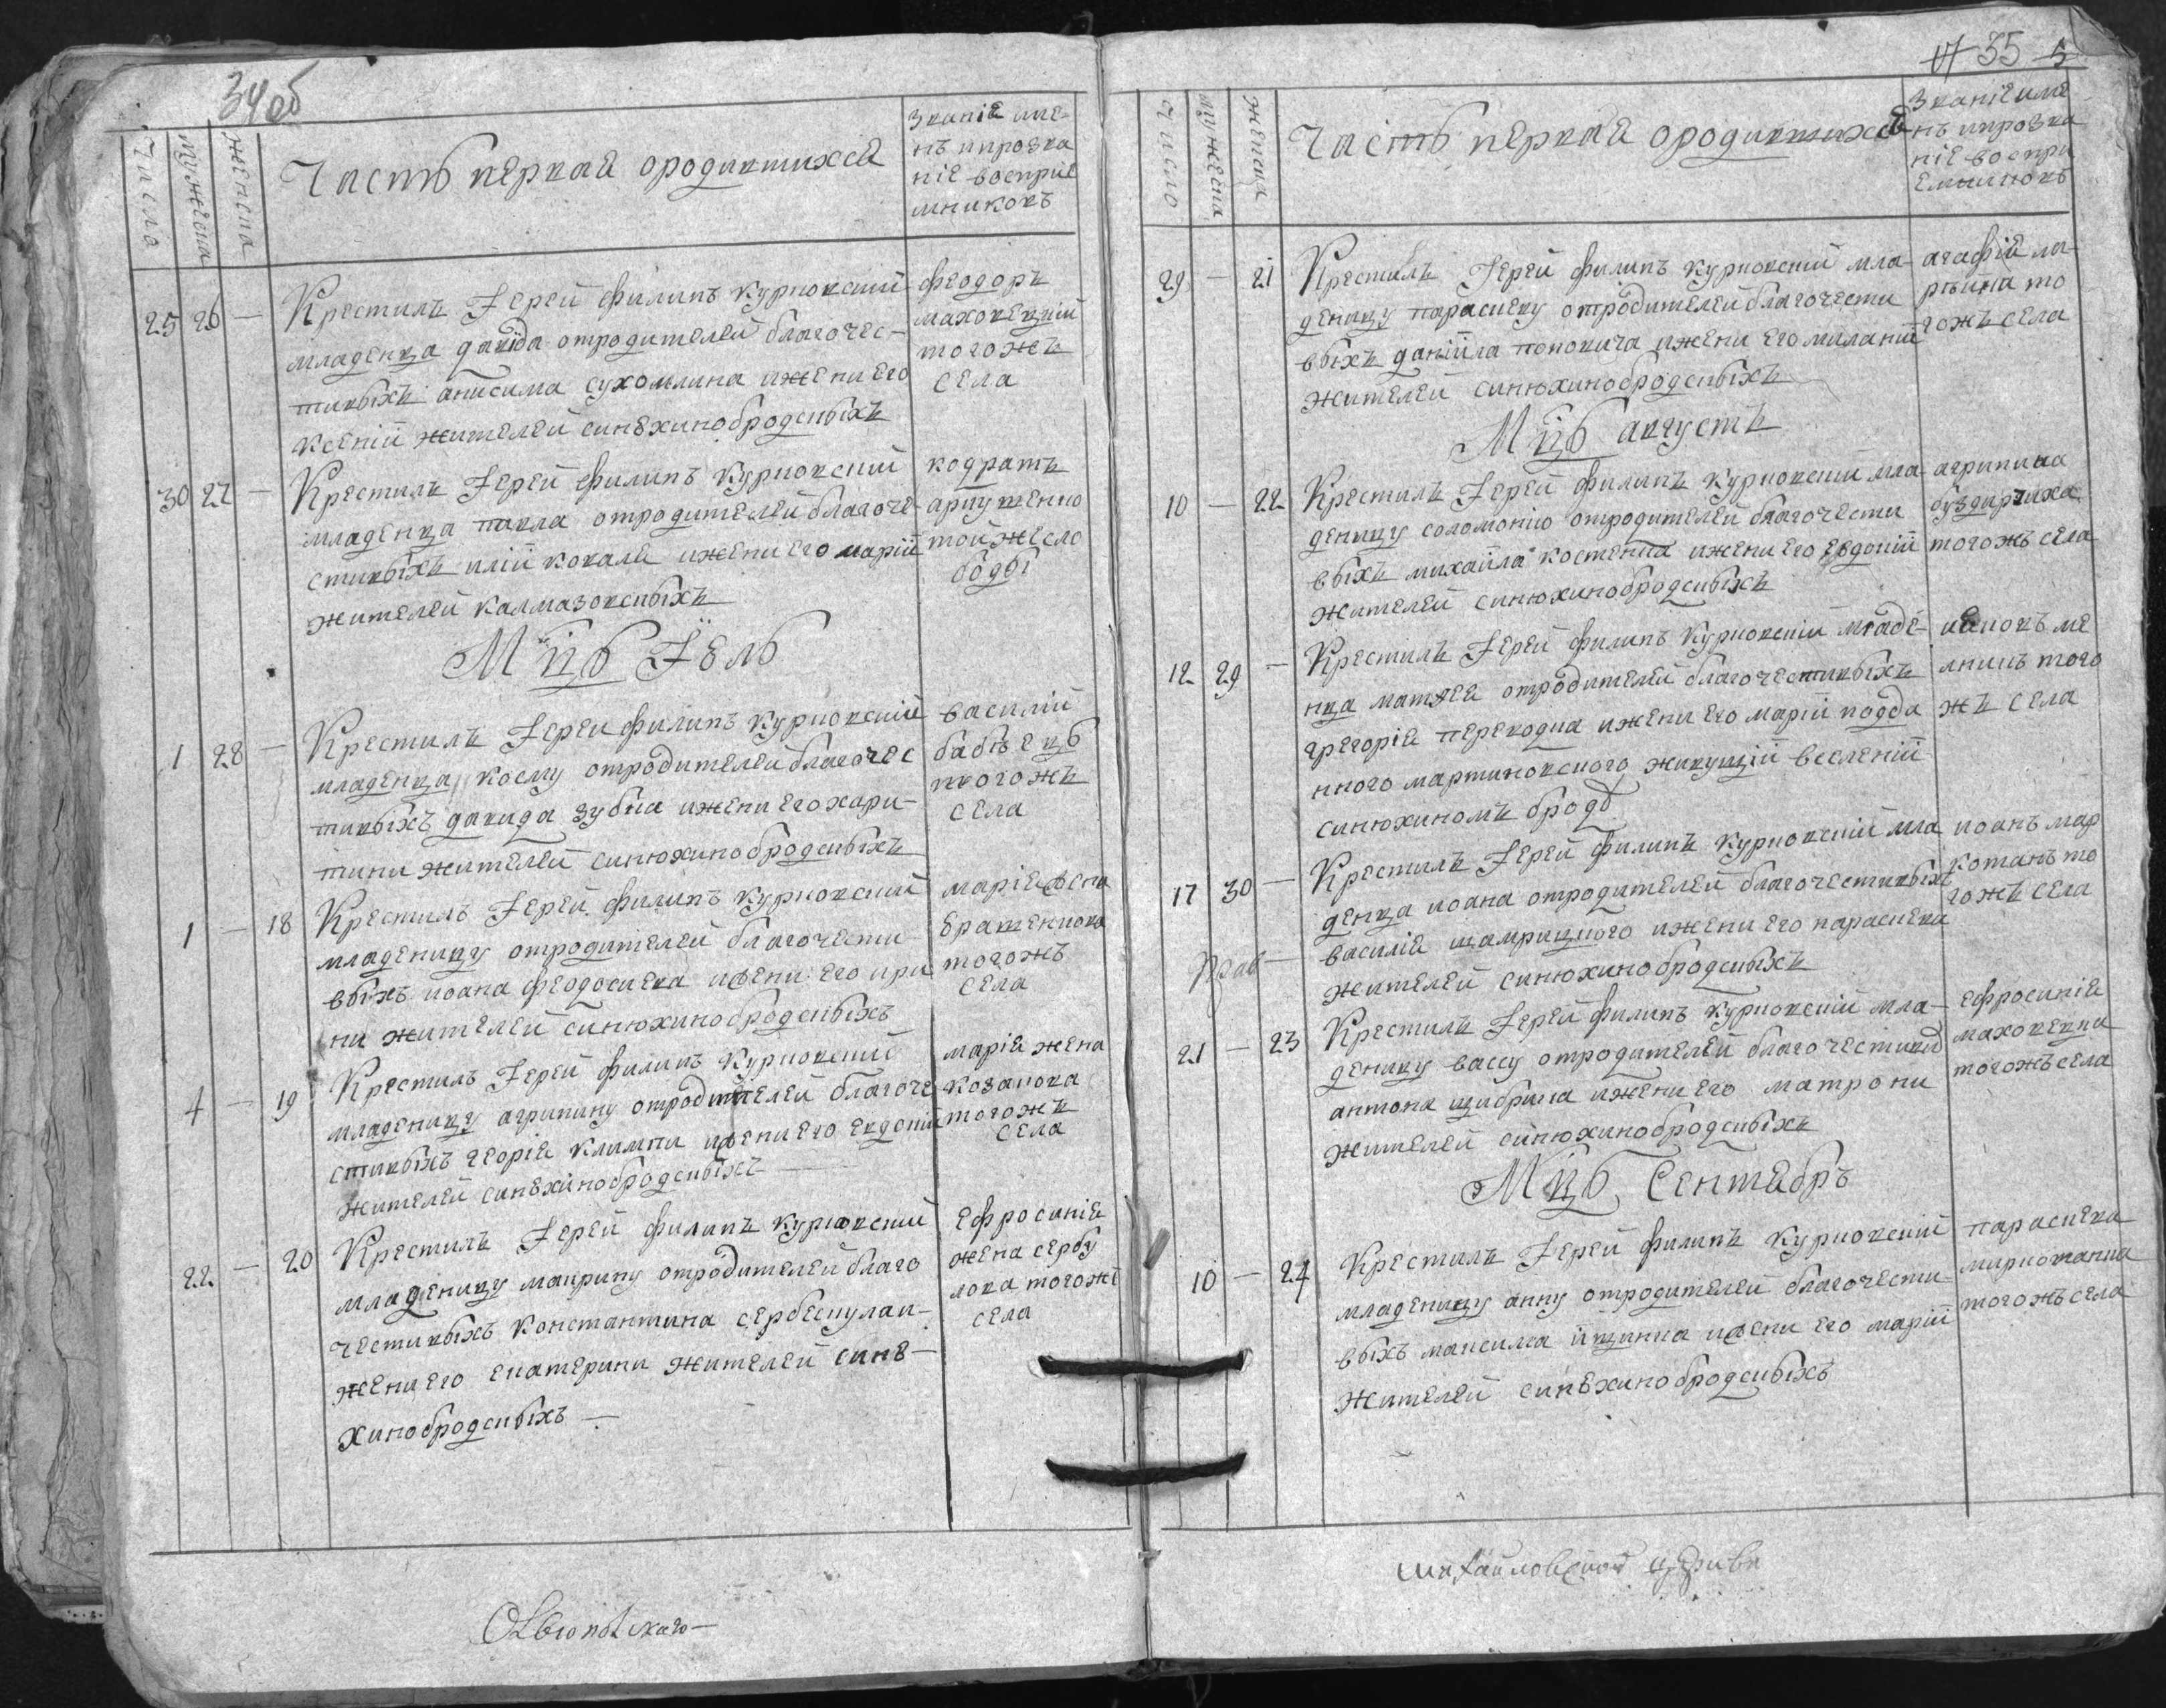 34об
число
мужеска
женска
Часть первая ородившихся
Званіе име-
нъ ипрозва
ніе восприе
мниковъ
25 26 — Крестилъ Іерей филипъ Курновский
младенца давіда отродителей благочес-
тивыхъ анисима сухомлина ижени его
ксеніи жителей синюхинобродскыхъ
феодоръ
маховецкій
тогожъ
села
30 27 — Крестилъ Іерей филипъ Курновский
младенца павла отродителей благоче-
стивыхъ иліи коваля ижени его маріи
жителей калмазовскыхъ
кодратъ
тойжесло
бодбі
Мцъ Іюль
1 28 — Крестилъ Іерей филипъ Курновский
младенца косму отродителей благочес
тивыхъ давида зубка ижени его хари-
тини жителей синюхинобродскыхъ
василій
бабѣецъ
тогожъ
села
1 — 18 Крестилъ Іерей филипъ Курновский
младеницу отродителей благочести-
выхъ иоана феодосиева ижени его ири
ни жителей синюхинобродскыхъ
марія жена
тогожъ
села
4 — 19 Крестилъ Іерей филипъ Курновский
младеницу агрипину отродителей благоче
стивыхъ георія климпи ижени его евдокіи
жителей синюхинобродскыхъ
марія жена
козакова
тогожъ
села
22 — 20 Крестилъ Іерей филипъ Курновский
младеницу маврину отродителей благо
честивыхъ константина сербескулаи-
жени его екатерини жителей синю-
хинобродскыхъ —
ефросинія
жена сербу
лова тогожъ
села
Ольвіопольскаго —
17 35 5
число
мужеска
женска
Часть первая ородившихся
Званіе име
нъ ипрозва
ніе воспри
емниковъ
29 — 21 Крестилъ Іерей филипъ Курновский мла-
деницу параскеву отродителей благочести
выхъ даніила поповича ижени его миланіи
жителей синюхинобродскыхъ
агафія ла-
рѣина то
гожъ села
Мцъ августъ
10 — 22 Крестилъ Іерей филипъ Курновский мла-
деницу соломонію отродителей благочести
выхъ михайла костенка ижени его евдокіи
жителей синюхинобродскыхъ
агрипина
буздирчиха
тогожъ села
12 29 — Крестилъ Іерей филипъ Курновскій младе-
нца матвея отродителей благочестивыхъ
григорія переводна ижени его маріи подда
нного мартиновского живущій вселеніи
синюхиномъ бродѣ
иаковъ ме
лникъ того
жъ села
17 30 — Крестилъ Іерей филипъ Курновский мла
денца иоана отродителей благочестивыхъ
василія шамрицкого ижени его параскева
жителей синюхинобродскыхъ
иоанъ мар
котанъ то
гожъ села
21 — 23 Крестилъ Іерей филипъ Курновский мла-
деницу вассу отродителей благочестивых
антона цибрика ижени его матрони
жителей синюхинобродскыхъ
ефросинія
маховецка
тогожъ села
Мцъ Сентябръ
10 — 24 Крестилъ Іерей филипъ Курновский
младеницу анну отродителей благочести-
выхъ максима іщинка ижени его маріи
жителей синюхинобродскыхъ
параскева
мирнотанна
тогожъ села
михайловской церкви